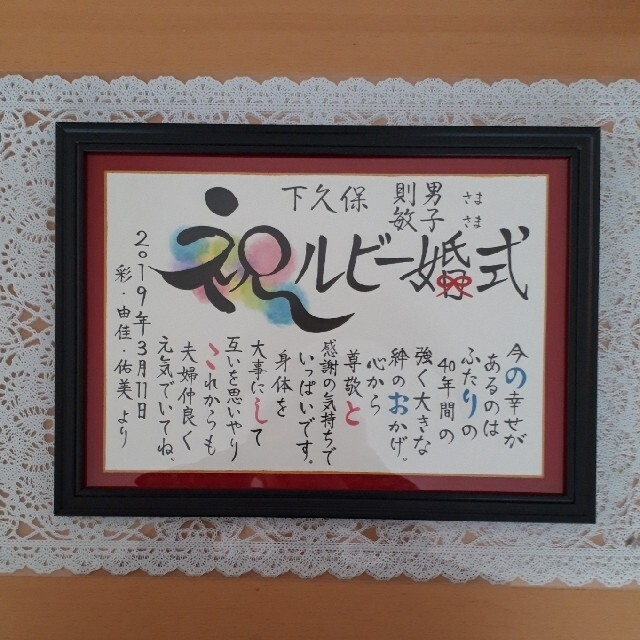 下久保 則男 さま
敏子 さま
祝ルビー婚式
今の幸せが
あるのは
ふたりの
40年間の
強く大きな
絆のおかげ。
心から
尊敬と
感謝の気持ちで
いっぱいです。
身体を
大事にして
互いを思いやり
これからも
夫婦仲良く
元気でいてね、
2019年3月11日
彩・由佳・佑美より